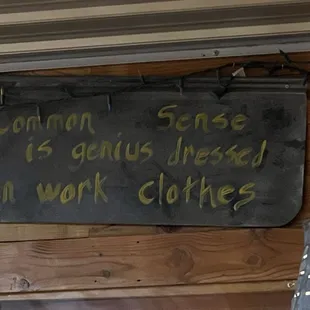 Common Sense
is genius dressed
in work clothes